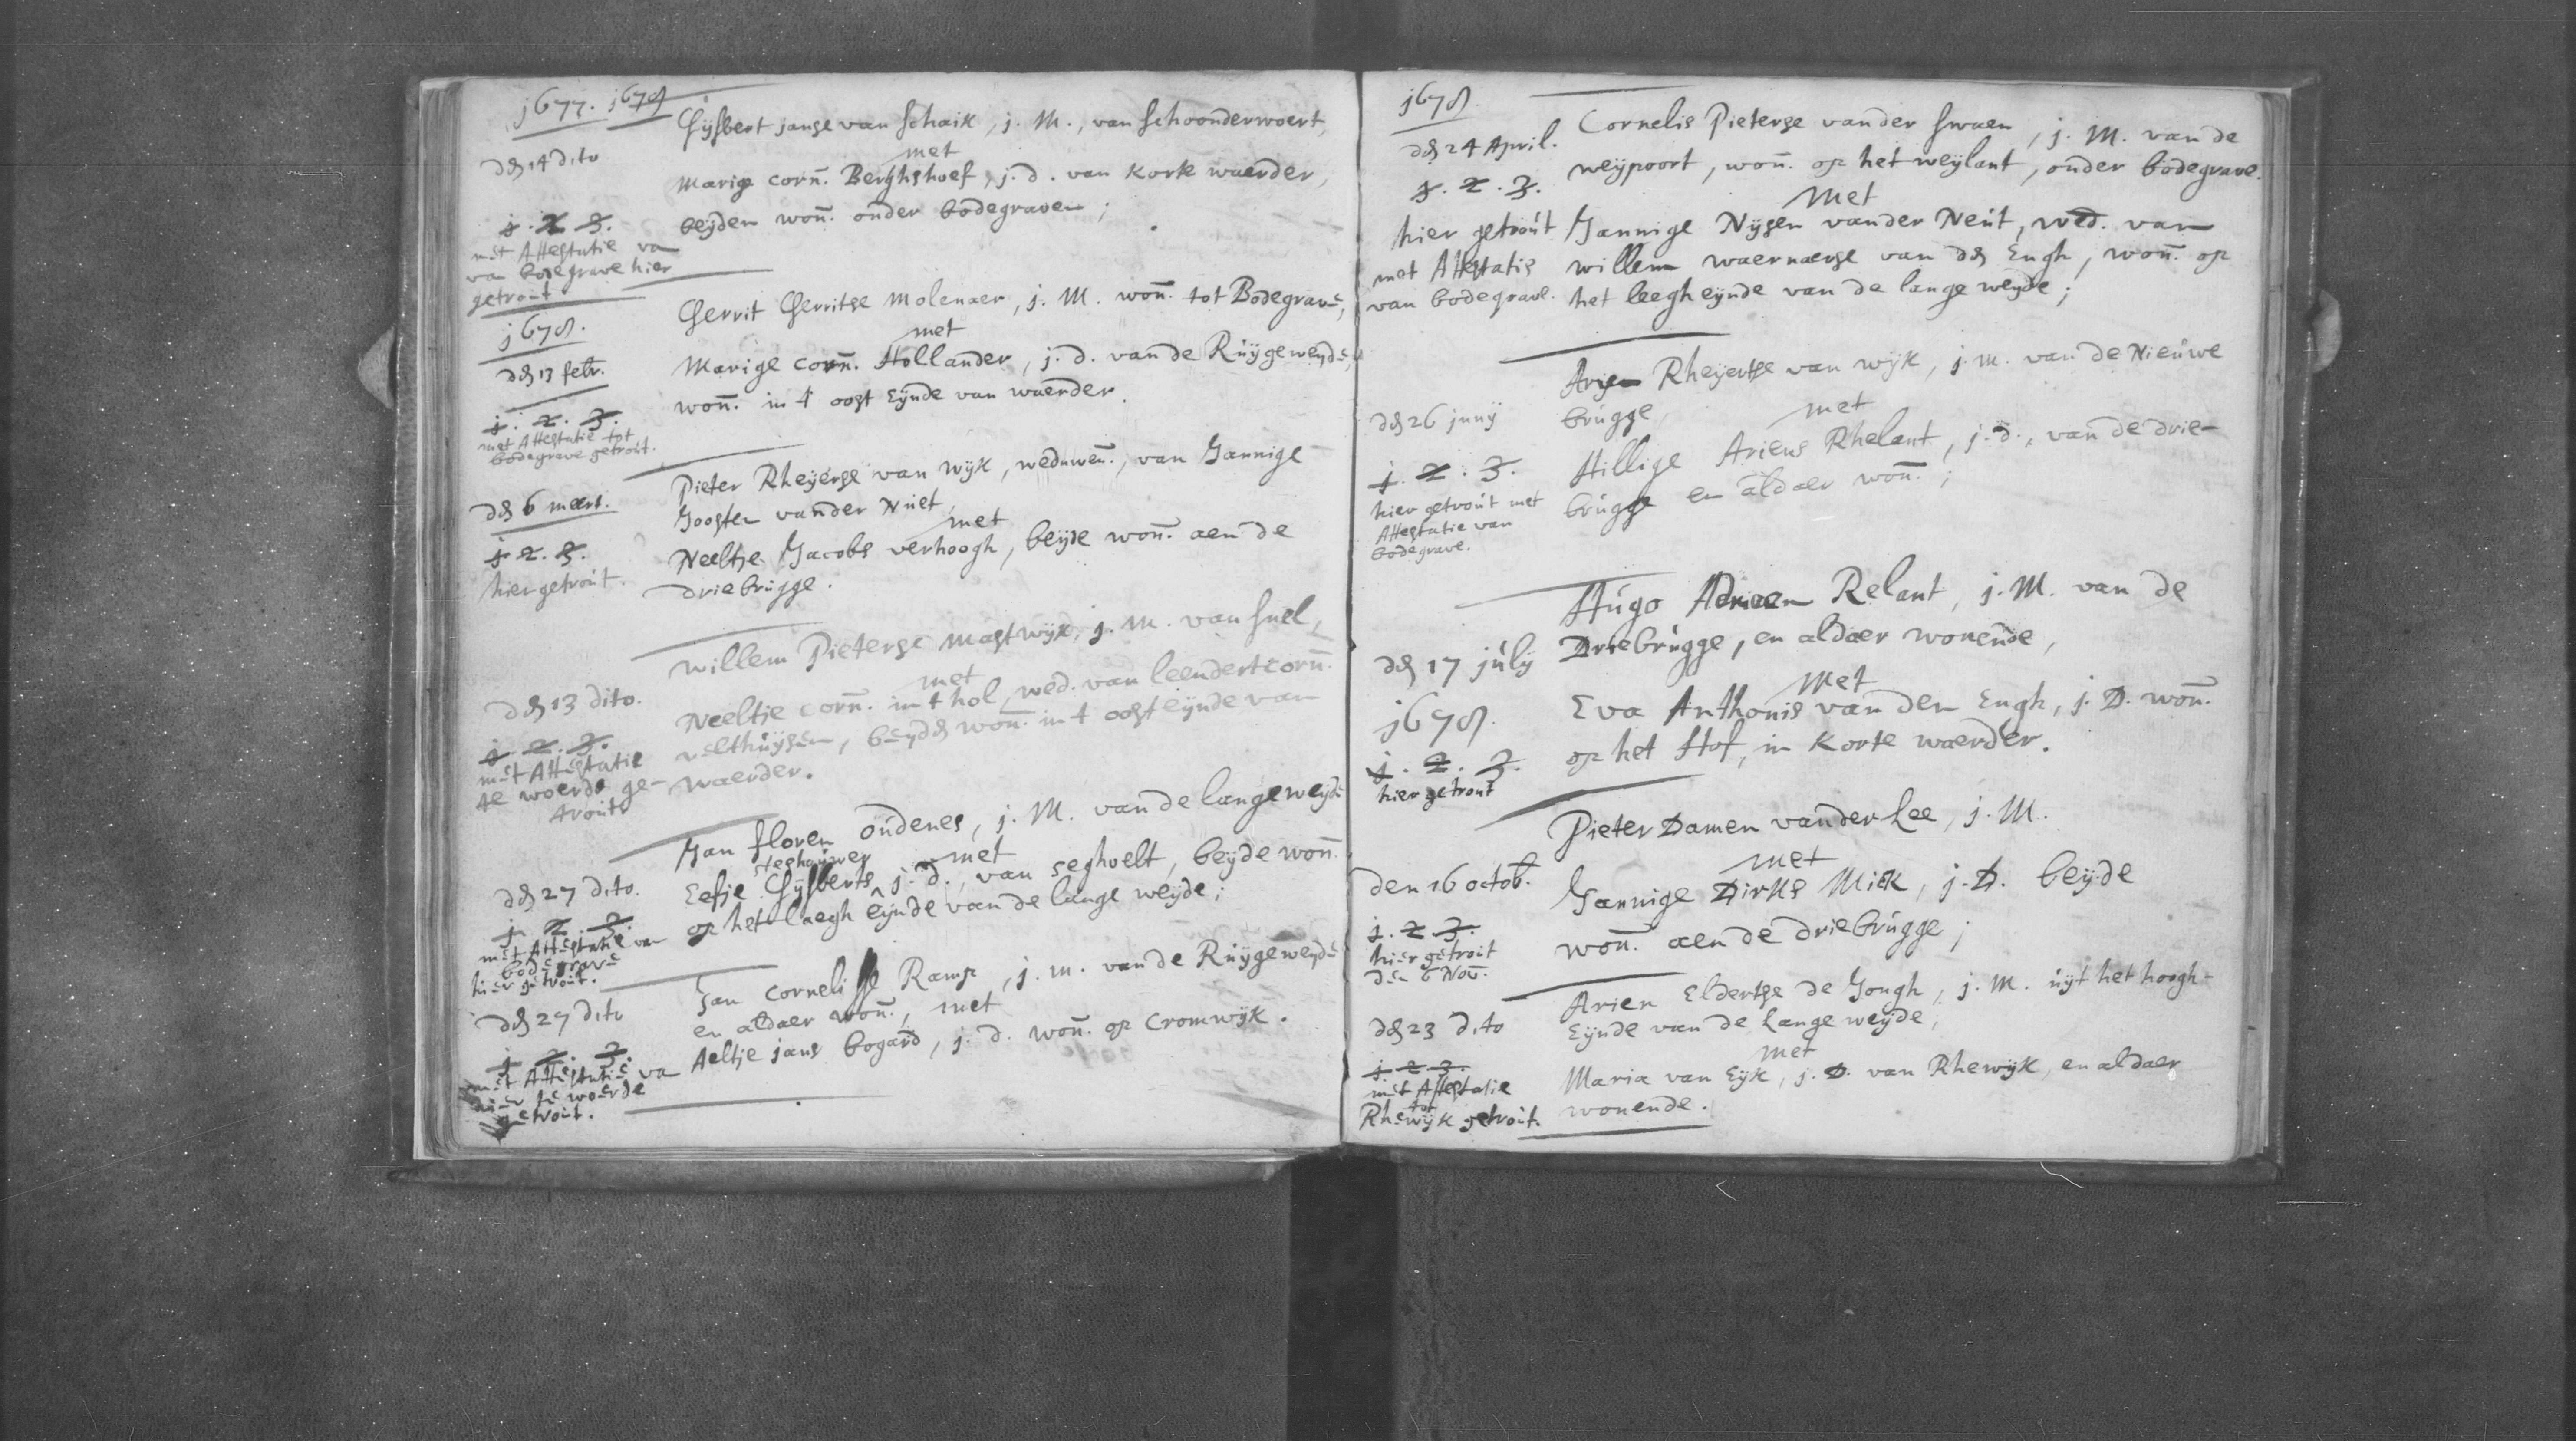 j677. j678
dn 14 dito
Gijsbert janse van Schaik, j. M., van Schoonderwoert,
met
Marige corn. Berghshoef, j. d. van Korte waerder,
beijden won. onder bodegraven;
j. 2. 3.
met Attestatie va
van bodegrave hier
getrout
j678.
dn 13 febr.
Gerrit Gerritse Molenaer, j. M. won. tot Bodegrave,
met
Marige corn. Hollander, j. d. van de Ruijgeweijde,
won. in t oost Eijnde van waerder.
j. 2. 3.
met Attestatie tot
bodegrave getrout.
dn 6 meert.
Pieter Rheijerse van Wijk, weduwen., van Jannige
Joosten vander Niet
met
Neeltje Jacobs verhoogh, beijde won. aen de
driebrugge.
j. 2. 3.
hier getrout.
dn 13 dito.
Willem Pieterse Mastwijk, j. M. van Snel,
met
Neeltje corn. in t hol, wed. van leendert corn.
velthuijsen, beijde won. in t oosteijnde van
waerder.
j. 2. 3.
met Attestatie
te woerde ge-
trout
dn 27 dito.
Jan floren oudenes, j. M. van de langeweijde
met
Eefje Gijsberts j. d., van seghvelt, beijde won.
op het laegh eijnde van de lange weijde;
j. 2. 3.
met Attestatie van
bodegrave
hier getrout.
dn 27 dito
Jan Cornelisse Ramp, j. m. van de Ruijgeweijde
en aldaer won., met
Aeltje jans bogard, j. d. won. op Cromwijk.
j. 2. 3.
met Attestatie va
hier te woerde
getrout.
j678
dn 24 April.
Cornelis Pieterse vander Swaen, j. M. van de
weijpoort, won. op het weijlant, onder bodegrave.
j. 2. 3.
Met
hier getrout
Jannige Nijsen vander Neut, wed. van
met Attestatie
willem waernaerse van dn Engh, won. op
van bodegrave.
het leegheijnde van de lange weijde;
dn 26 junij
Arien Rheijertse van wijk, j. m. van de Nieuwe
brugge,
met
Hillige Ariens Rhelant, j. d., van de drie-
brugge en aldaer won.;
j. 2. 3.
hier getrout met
Attestatie van
bodegrave.
dn 17 julij
Hugo Adriaen Relant, j. M. van de
Driebrugge, en aldaer wonende,
Met
j678.
Eva Anthonis van den Engh, j. D. won.
op het Hof, in Korte waerder.
j. 2. 3.
hier getrout
Pieter Damen vander Lee, j. M.
met
den 16 octob.
Jannige Dirks Mick, j. D. beijde
won. aen de driebrugge;
j. 2 3.
hier getrout
den 6 Nov.
dn 23 dito
Arien Eldertse de Jongh, j. M. uijt het hoogh-
Eijnde van de Lange weijde,
met
Maria van Eijk, j. D. van Rhewijk, en aldaer
wonende.
j. 2 3.
met Attestatie
tot
Rhewijk getrout.